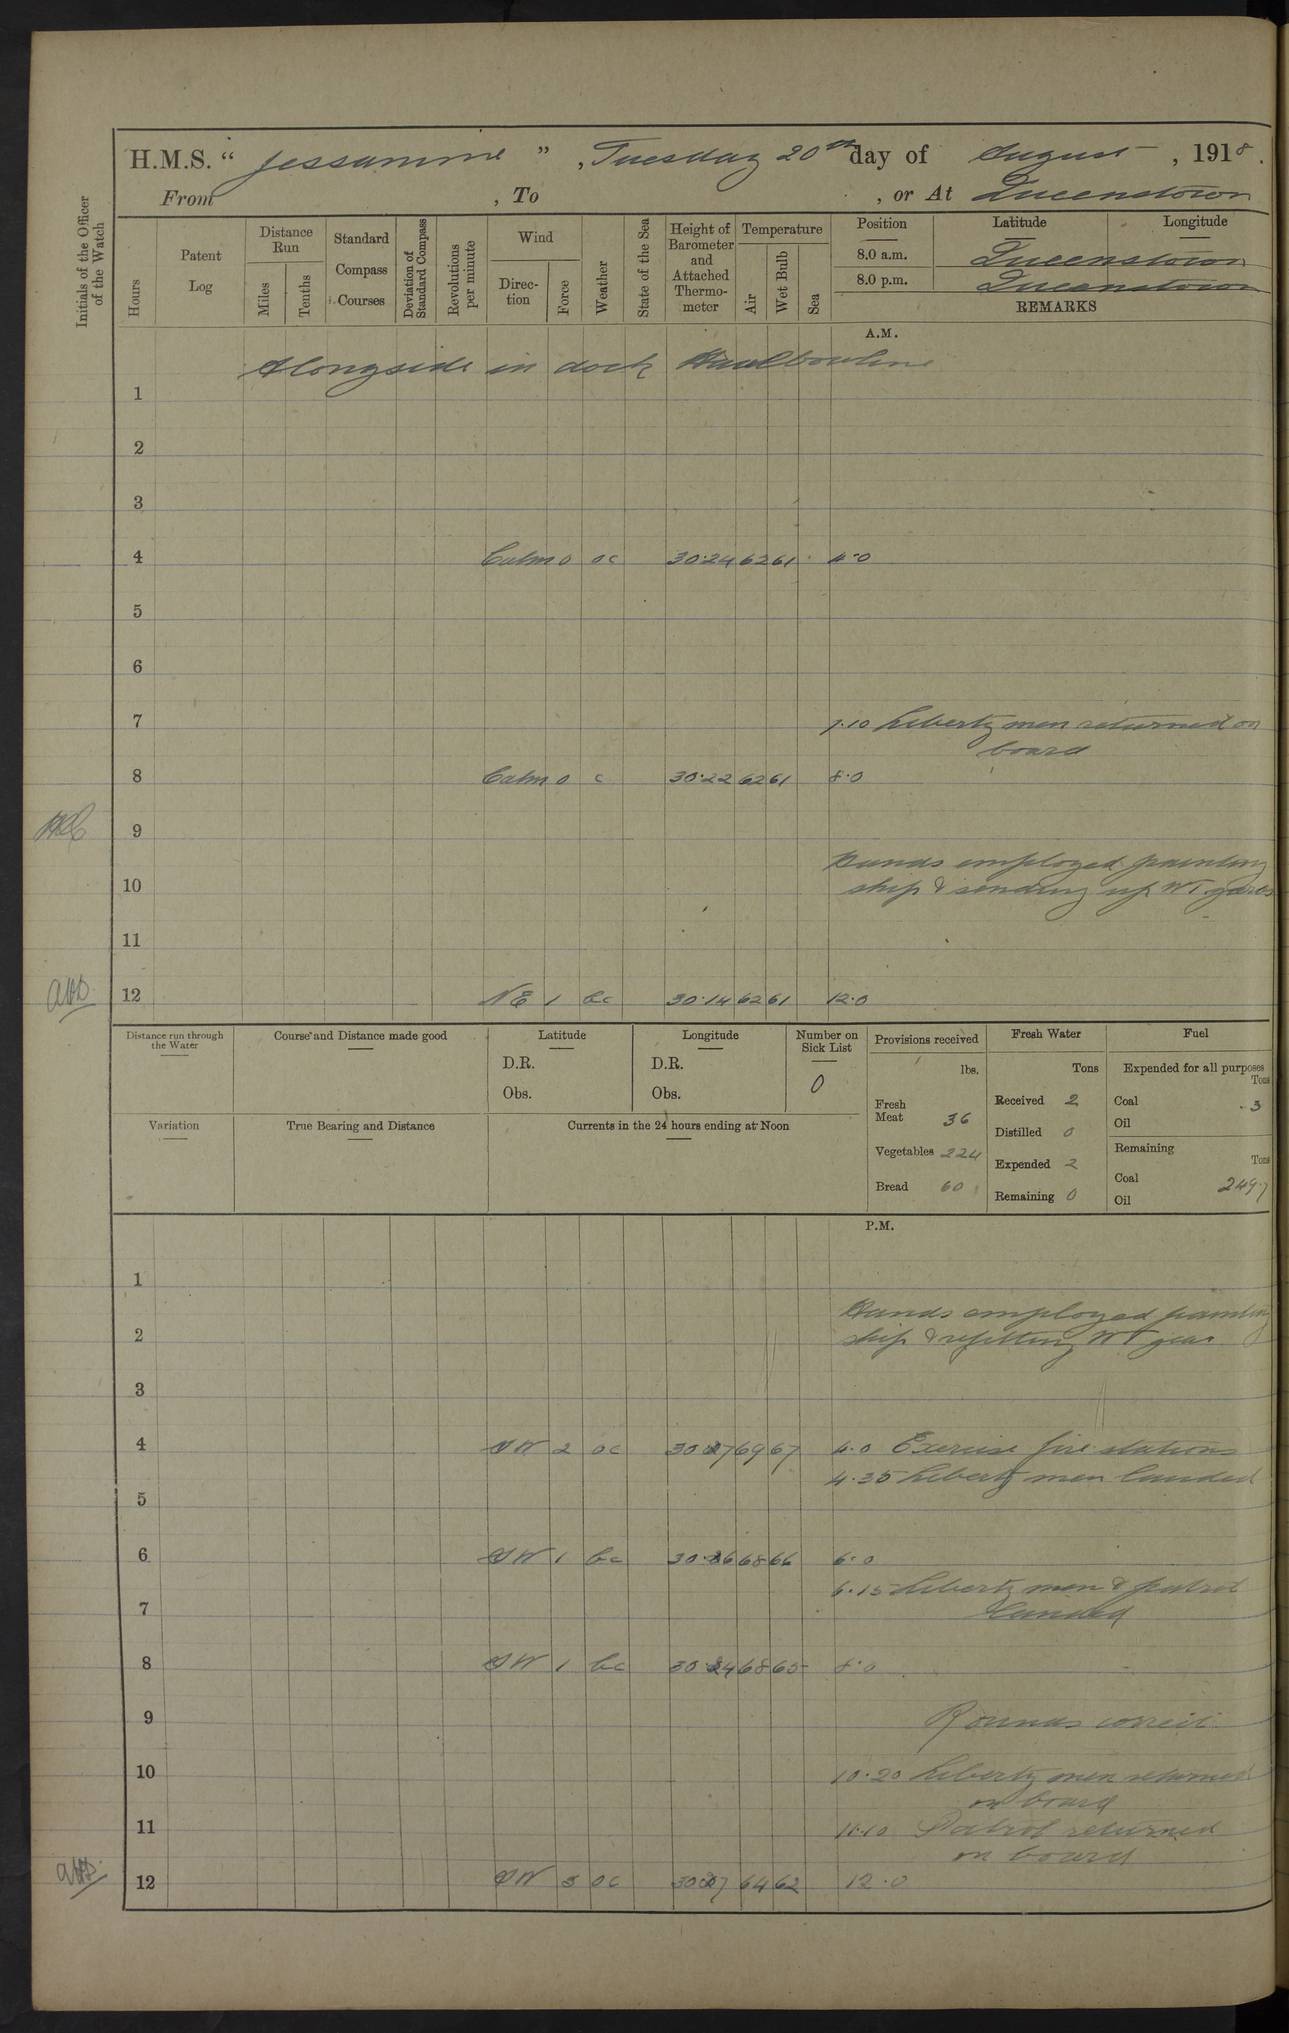 H.M.S. “ Jessamine ” , Tuesday 20th day of August , 1918 .
From , To , or At Queenstown
Initials of the Officer of the Watch
Hours
Patent Log
Distance Run
Miles
Tenths
Standard Compass Courses
Deviation of Standard Compass
Revolutions per minute
Wind
Direc-tion
Force
Weather
State of the Sea
Height of Barometer and Attached Thermo-meter
Temperature
Air
Wet Bulb
Sea
Position Latitude Longitude
8.0 a.m. Queenstown
8.0 p.m. Queenstown
REMARKS
A.M.
Alongside in dock Haulbowline
1
2
3
4 Calm 0 oc 30.24 62 61 4.0
5
6
7 7.10 Liberty men returned on
board
8 Calm 0 c 30.22 62 61 8.0
9
Hands employed painting
10 ship & sending up WT yards
11
12 NE 1 bc 30.14 62 61 12.0
Distance run through the Water
Course and Distance made good
Latitude
D.R.
Obs.
Longitude
D.R.
Obs.
Number on Sick List
0
Provisions received
lbs.
Fresh Meat 36
Vegetables 224
Bread 60
Fresh Water
Tons
Received 2
Distilled 0
Expended 2
Remaining 0
Fuel
Expended for all purposes
Tons
Coal .3
Oil
Remaining
Tons
Coal 249.7
Oil
Variation
True Bearing and Distance
Currents in the 24 hours ending at Noon
P.M.
1
Hands employed painting
2 ship & refitting WT gear
3
4 SW 2 oc 69 67 4.0 Exercise fire stations
4.35 Liberty men landed
5
6 SW 1 bc 68 66 6.0
6.15 Liberty men & patrol
7 landed
8 SW 1 bc 68 65 8.0
9 Rounds correct.
10 10.20 Liberty men returned
on board
11 11.10 Patrol returned
on board
12 SW 3 oc 64 62 12.0